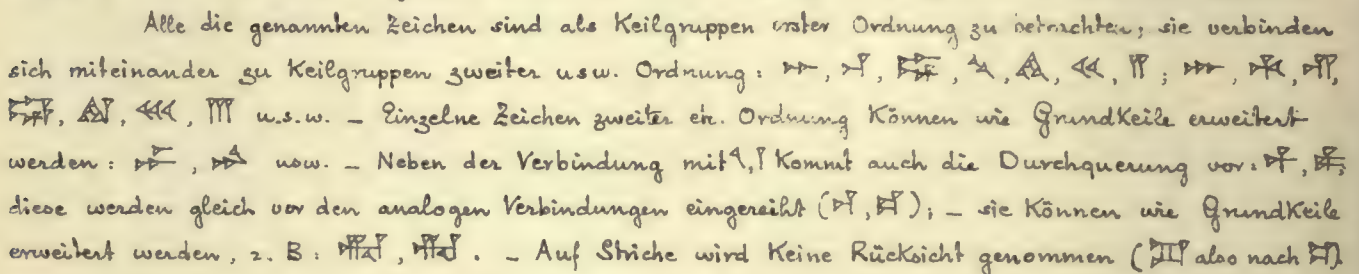 Alle die genannten Zeichen sind als Keilgruppen erster Ordnung zu betrachten; sie verbinden
sich miteinander zu Keilgruppen zweiter usw. Ordnung: 
u.s.w. – Einzelne Zeichen zweiter etc. Ordnung Können wie GrundKeile erweitert
werden: , usw. – Neben der Verbindung mit , Kommt auch die Durchquerung vor: ,
diese werden gleich vor den analogen Verbindungen eingereiht ( , ); – sie Können wie GrundKeile
erweitert werden, z. B: , . – Auf Striche wird Keine Rücksicht genommen ( also nach )